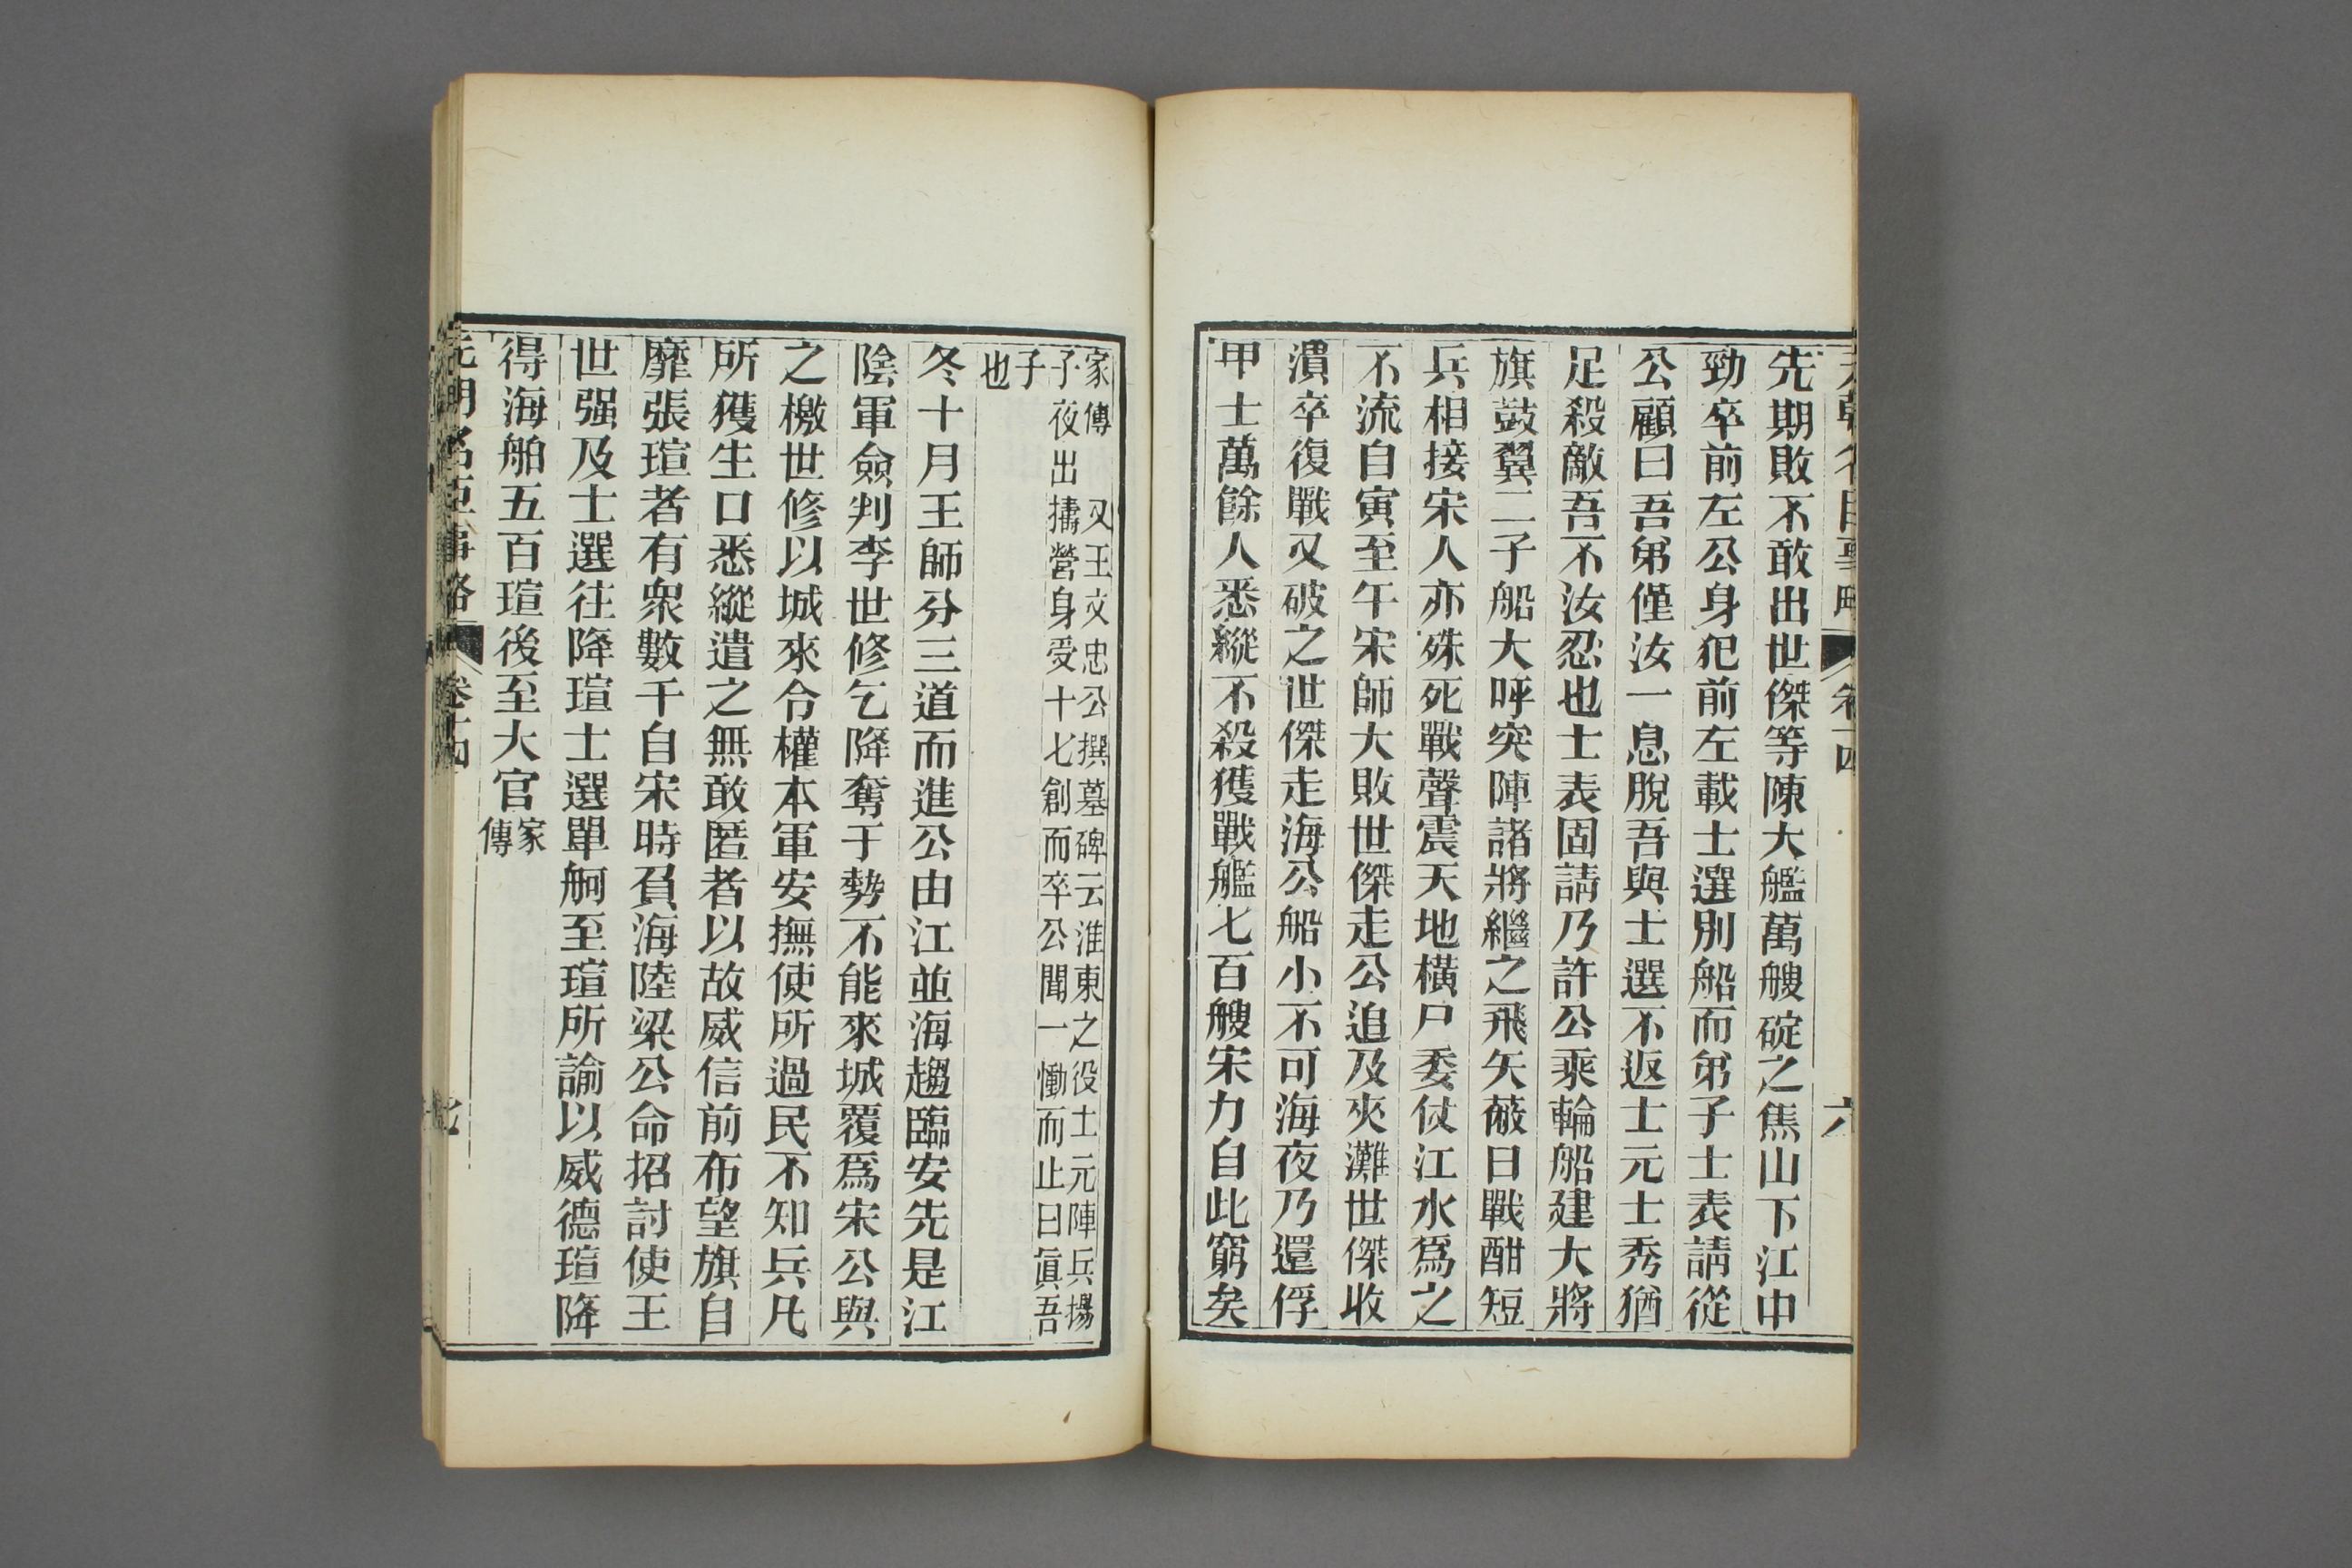 先期敗不敢出世傑等陳大艦萬艘碇之焦山下江中
勁卒前左公身犯前左載士選別船而弟子士表請從
公顧曰吾弟僅汝一息脫吾與士選不返士元士秀猶
足殺敵吾不汝忍也士表固請乃許公乘輪船建大將
旗鼓翼二子船大呼突陣諸將繼之飛矢蔽日戰酣短
兵相接宋人亦殊死戰聲震天地橫尸委仗江水爲之
不流自寅至午宋師大敗世傑走公追及夾灘世傑收
潰卒復戰又破之世傑走海公船小不可海夜乃還俘
甲士萬餘人悉縱不殺獲戰艦七百艘宋力自此窮矣
元朝名臣事略 卷十四 六
家傳 又王文忠公撰墓碑云淮東之役士元陣兵揚
子夜出擣營身受十七創而卒公聞一慟而止曰眞吾
子
也
冬十月王師分三道而進公由江並海趨臨安先是江
陰軍僉判李世修乞降奪于勢不能來城覆爲宋公與
之檄世修以城來令權本軍安撫使所過民不知兵凡
所獲生口悉縱遣之無敢匿者以故威信前布望旗自
靡張瑄者有衆數千自宋時負海陸梁公命招討使王
世强及士選往降瑄士選單舸至瑄所諭以威德瑄降
得海舶五百瑄後至大官 家傳
元朝名臣事略 卷十四 七